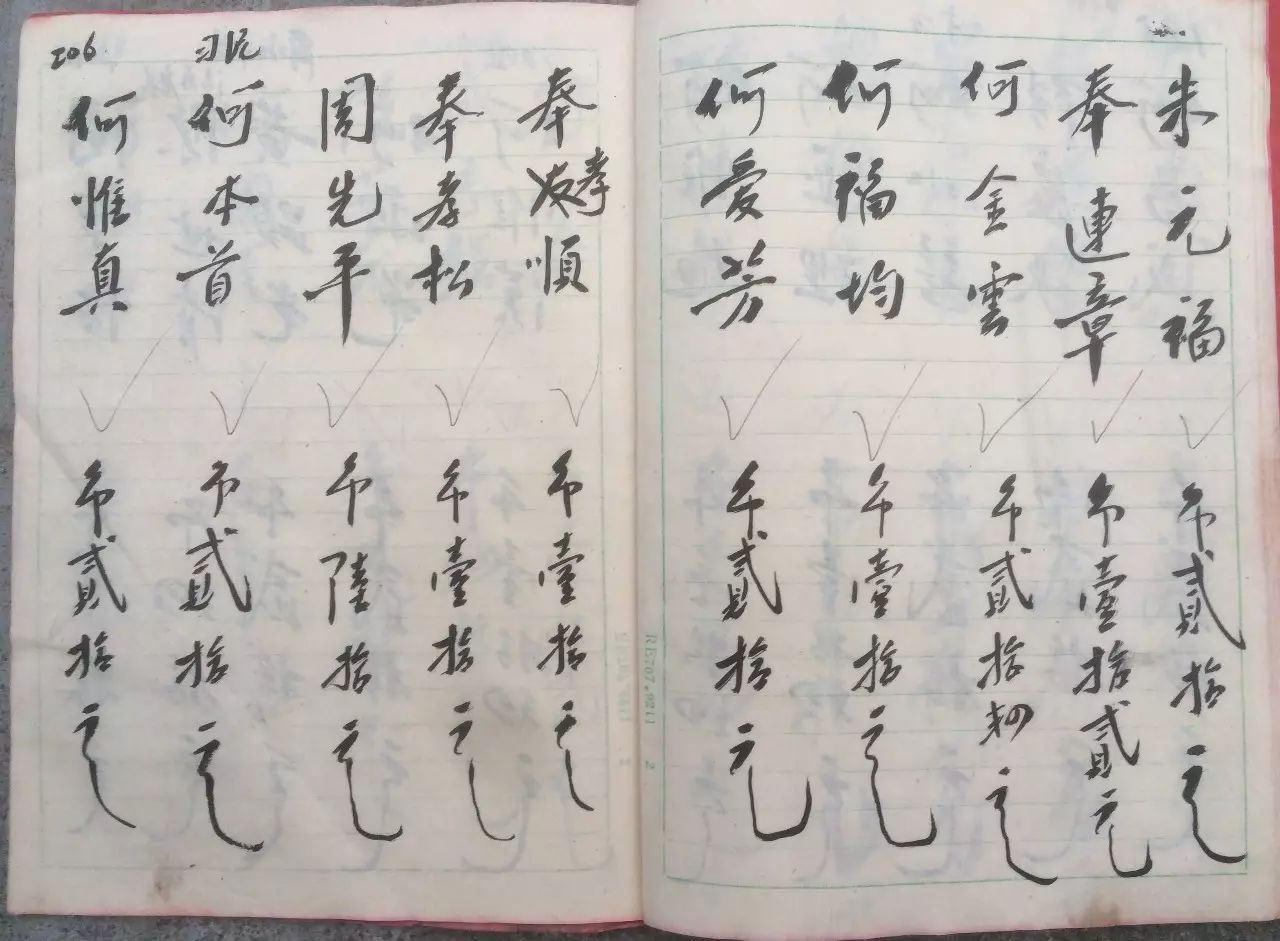 朱元福 币贰拾元
奉連章 币壹拾贰元
何金雲 币贰拾 元
何福均 币壹拾元
何愛芳 币贰拾元
奉孝順 币壹拾元
奉孝松 币壹拾元
周先平 币陸拾元
何本首 币贰拾元
206
何惟真 币贰拾元
RIE707.9211 2